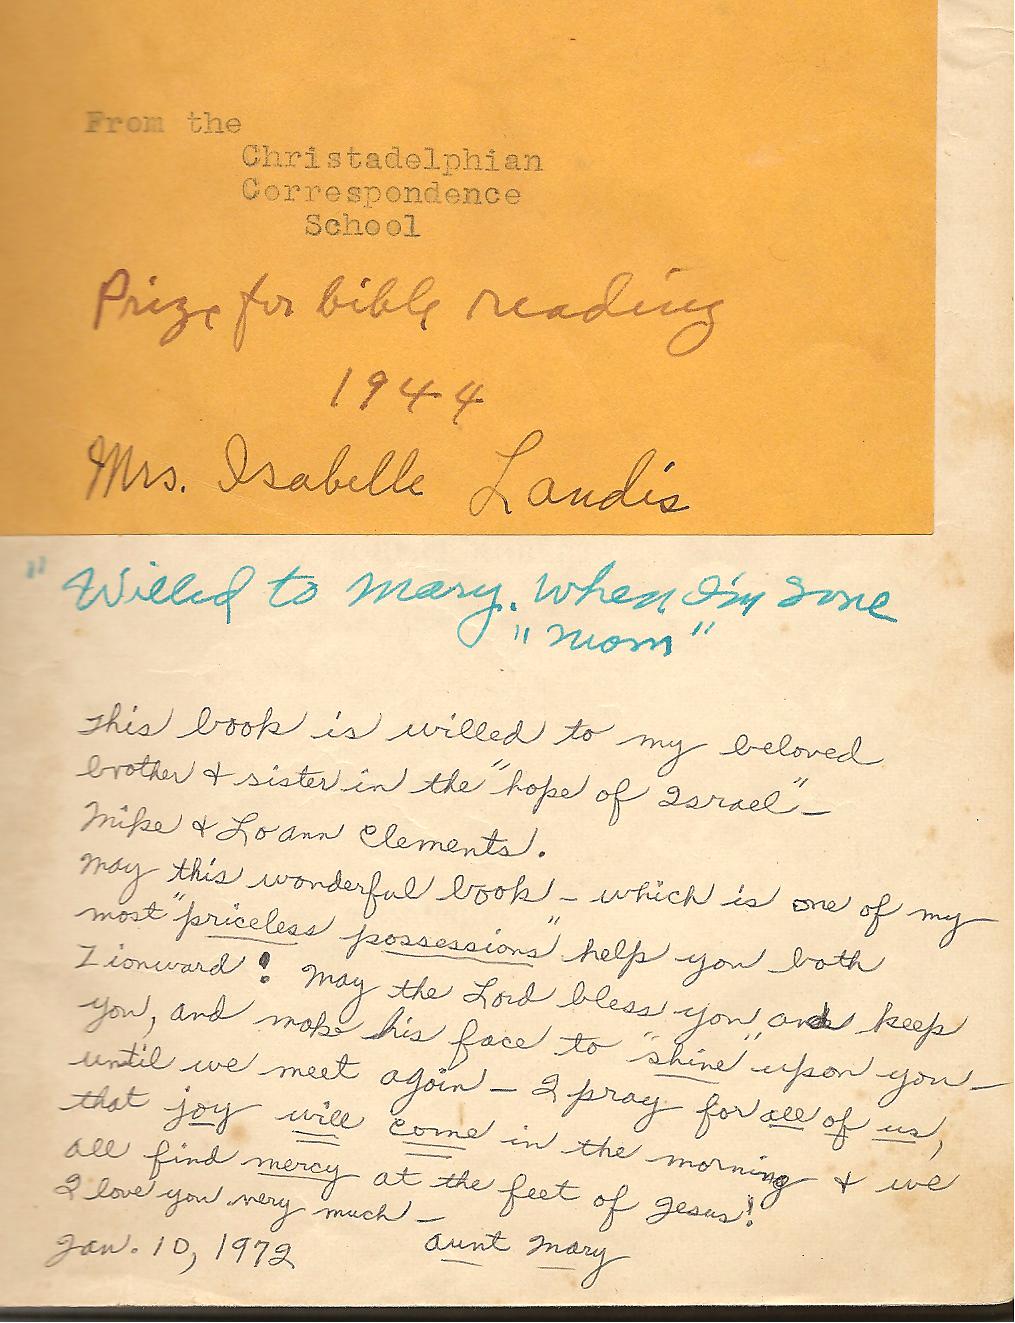 From the
Christadelphian
Correspondence
School
Prize for bible reading
1944
Mrs. Isabelle Landis
" Willed to Mary. When I'm gone
"Mom"
This book is willed to my beloved
brother & sister in the "hope of Israel" –
Mike & Loann Clements.
May this wonderful book – which is one of my
most "priceless possessions" help you both
Zionward! May the Lord bless you and keep
you, and make his face to "shine" upon you –
until we meet again – I pray for all of us,
that joy will come in the morning & we
all find mercy at the feet of Jesus!
I love you very much –
Jan. 10, 1972 Aunt Mary